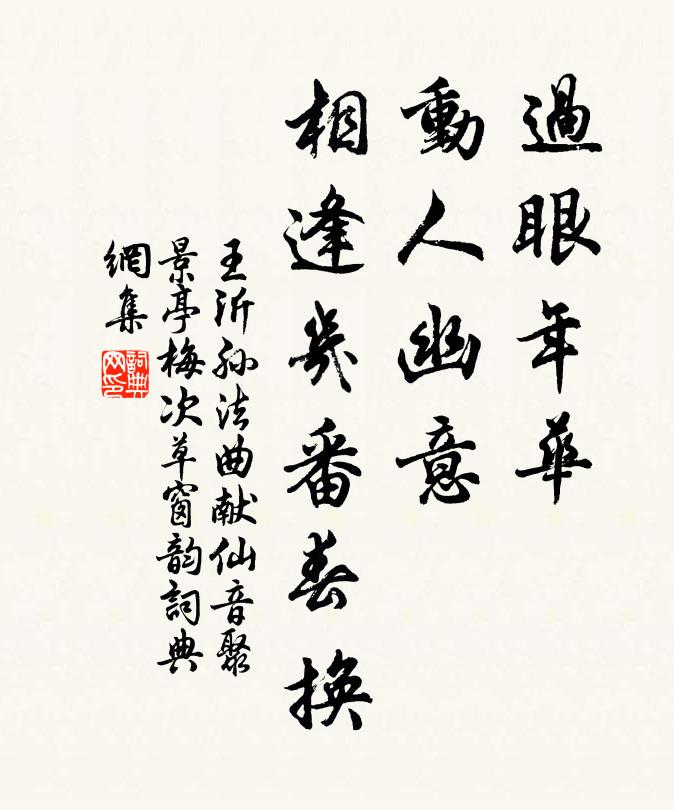 過眼年華
動人幽意
相逢幾番春換
王沂孫法曲献仙音聚
景亭梅次草窗韵詞典
網集
詞典网印